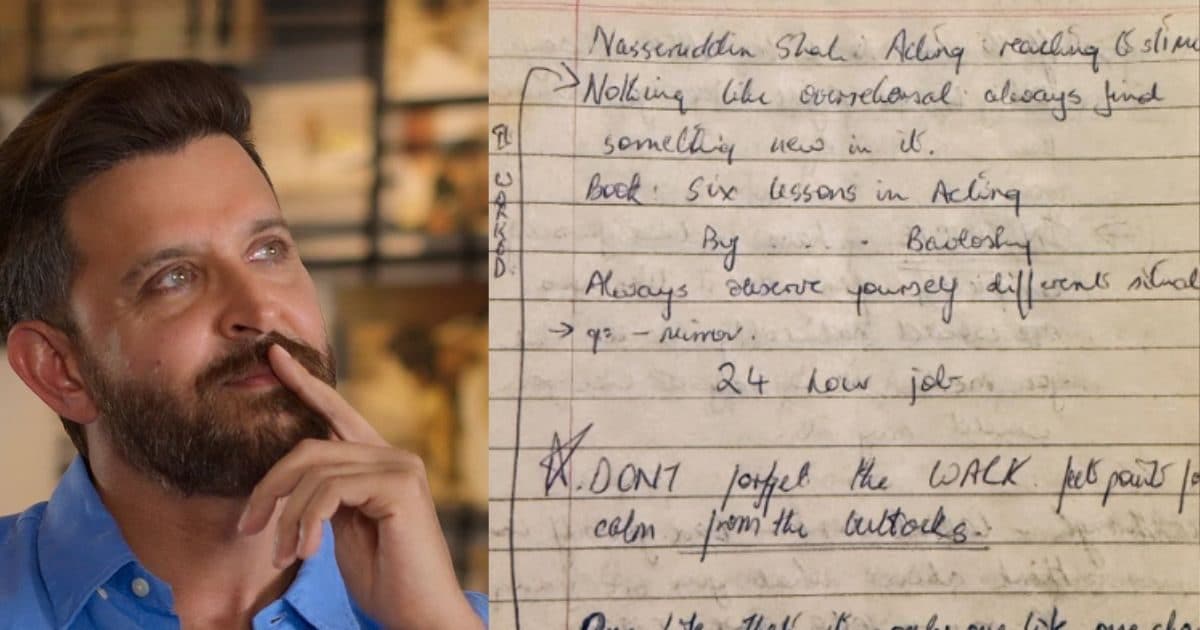 Nasseruddin Shah : Acting : reacting to stimu
Nothing like overrehersal always find
something new in it.
IT WORKED.
Book : Six lessons in Acting
By . . . . Baoloshy
Always observe yourself differents situat
→ eg: - mirror.
24 hour job
☆. DONT forget the WALK feet points fo
calm from the buttocks.